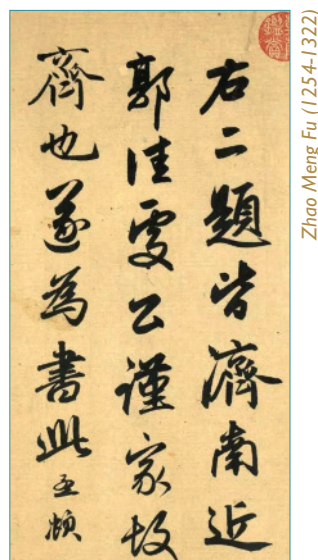 右二題皆濟南近
郭佳處公謹家故
齊也遂為書此孟頫
Zhao Meng Fu (1254-1322)